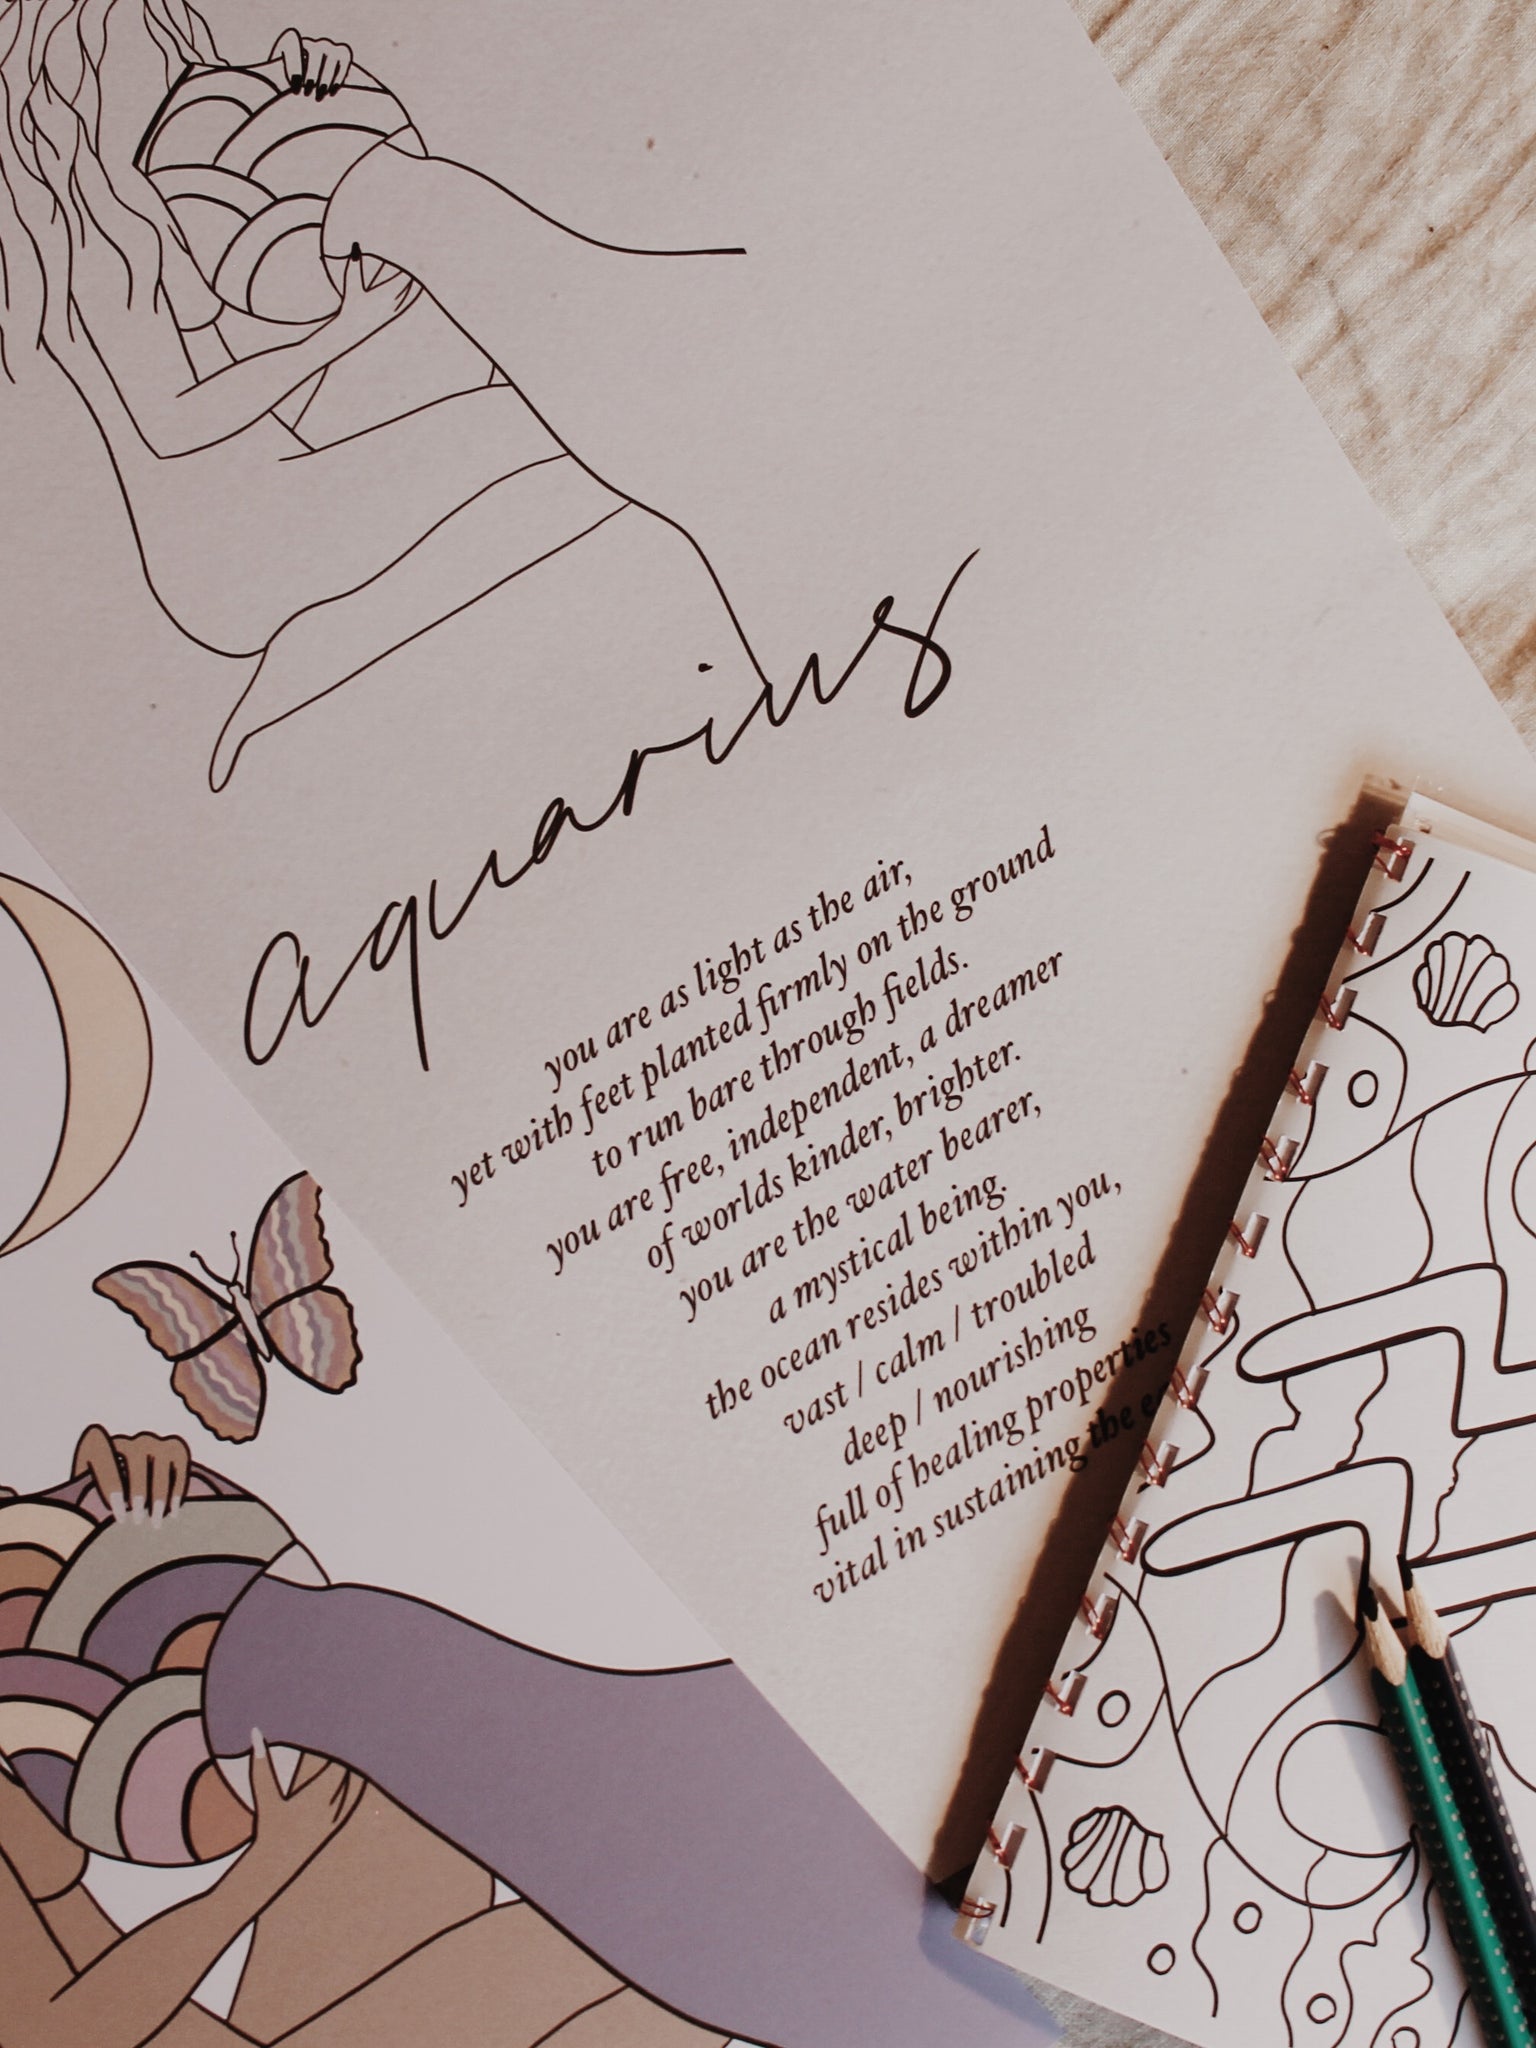 aquarius
you are as light as the air,
yet with feet planted firmly on the ground
to run bare through fields.
you are free, independent, a dreamer
of worlds kinder, brighter.
you are the water bearer,
a mystical being.
the ocean resides within you,
vast / calm / troubled
deep / nourishing
full of healing properties
vital in sustaining the